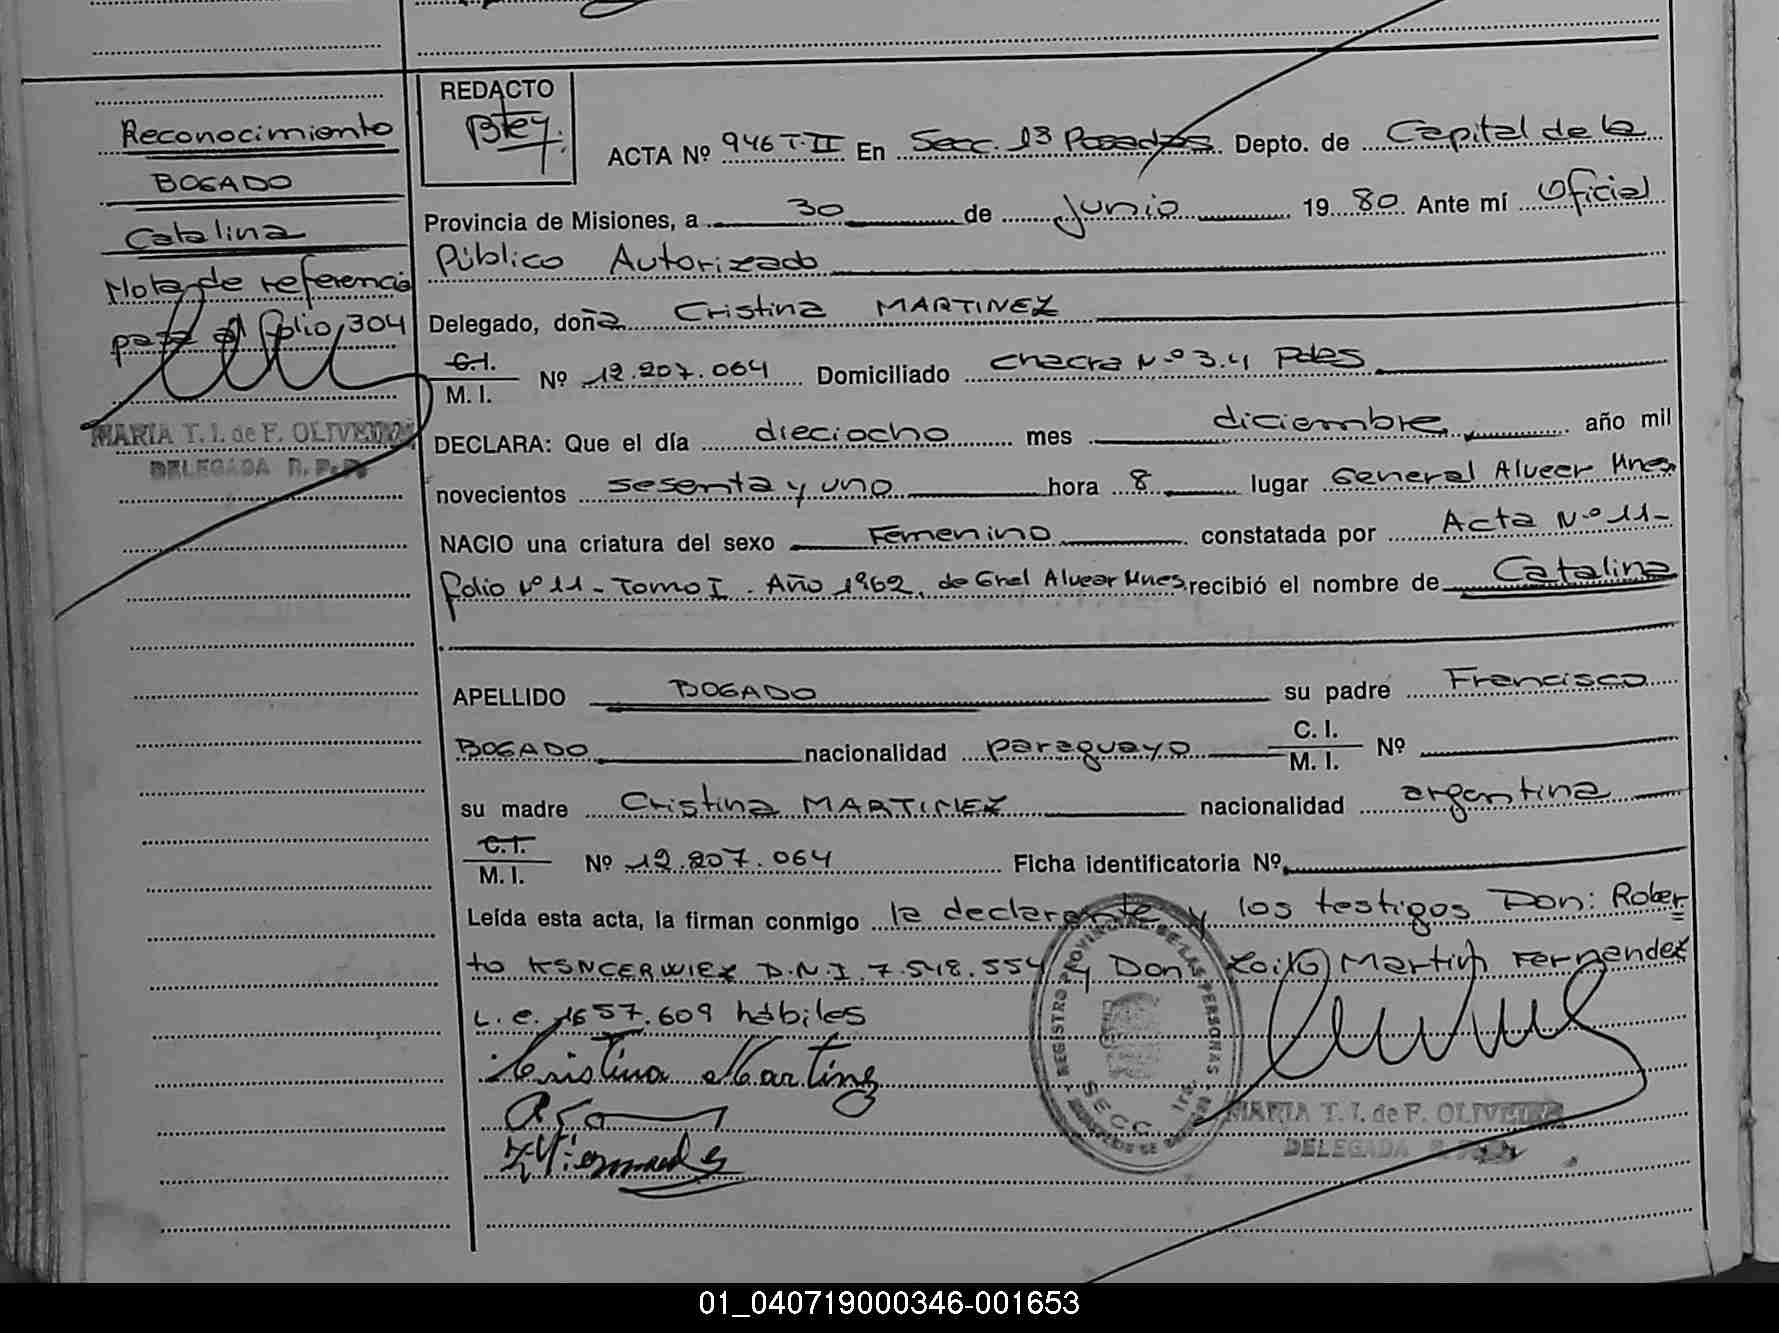 Reconocimiento
BOGADO
Catalina
Nota de referencia
para el folio 304
MARIA T. I. de F. OLIVEIRA
DELEGADA R. P. P.
REDACTO
ACTA Nº 946 T.II En Secc. 1ª Posadas Depto. de Capital de la
Provincia de Misiones, a 30 de Junio 19 80 Ante mí Oficial
Público Autorizado
Delegado, doña Cristina MARTINEZ
C.I.
M. I. Nº 12.207.064 Domiciliado chacra Nº 34 Pdas
DECLARA: Que el día dieciocho mes diciembre año mil
novecientos sesenta y uno hora 8 lugar General Alvear Mnes.
NACIO una criatura del sexo Femenino constatada por Acta Nº 11-
folio Nº 11 - Tomo I - Año 1962, de Gral Alvear Mnes recibió el nombre de Catalina
APELLIDO BOGADO su padre Francisco
BOGADO nacionalidad paraguayo C. I.
M. I. Nº
su madre Cristina MARTINEZ nacionalidad argentina
C.I.
M. I. Nº 12.207.064 Ficha identificatoria Nº
Leída esta acta, la firman conmigo la declarante y los testigos Don: Rober
to KSNCERWIEZ D.N.I. 7.548.554 y Don Zoilo Martin Fernandez
L.E. 1657.609 hábiles
Cristina Martinez
REGISTRO PROVINCIAL DE LAS PERSONAS
SECC. 1ra.
MARIA T. I. de F. OLIVEIRA
DELEGADA
01_040719000346-001653